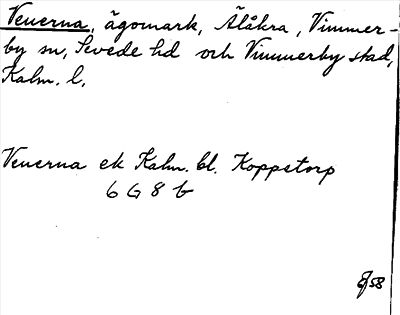 Venerna, ägomark, Älåkra, Vimmer-
by sn, Sevede hd och Vimmerby stad,
Kalm. l.
Venerna ek Kalm. bl. Koppetorp
6 G 8 b
58